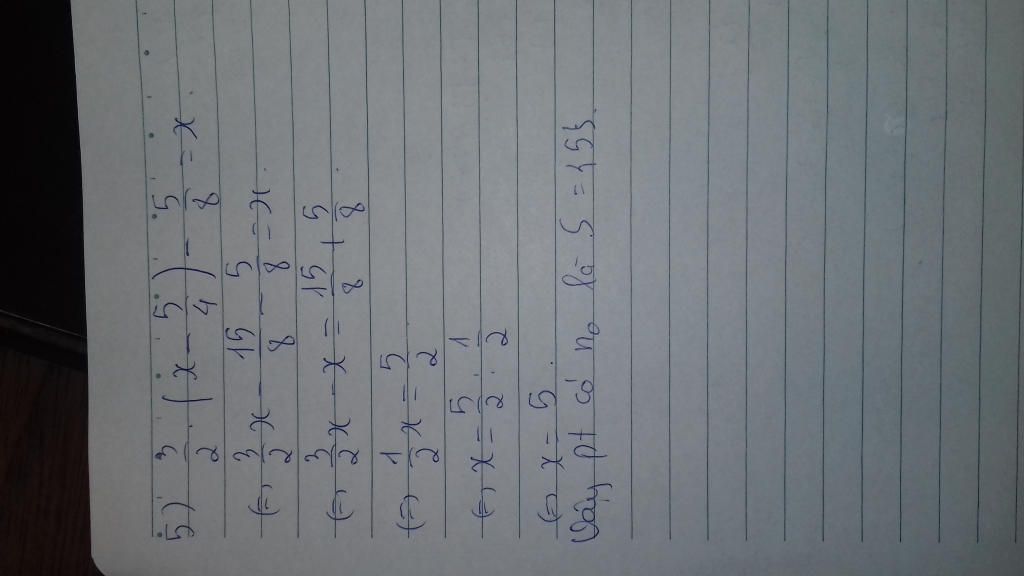 5) 3/2 . (x - 5/4) - 5/8 = x.
(=) 3/2 x - 15/8 - 5/8 = x.
(=) 3/2 x - x = 15/8 + 5/8.
(=) 1/2 x = 5/2
(=) x = 5/2 : 1/2
(=) x = 5.
Vậy pt có n₀ là S = {5}.